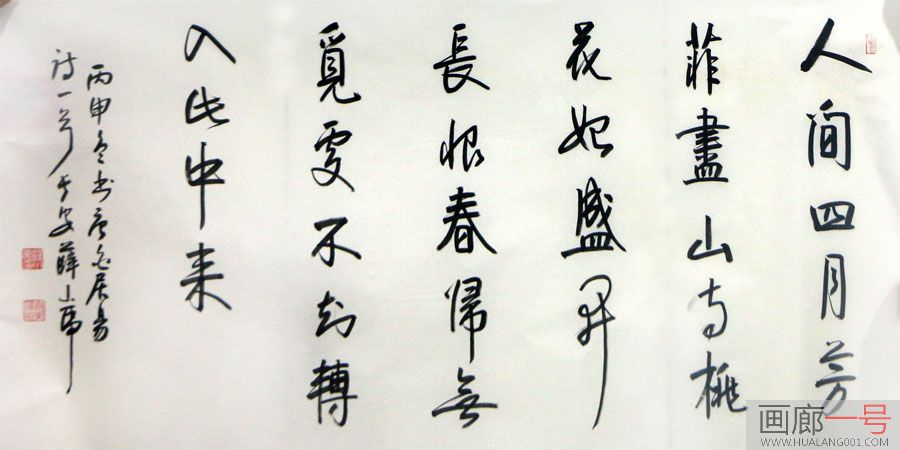 人间四月芳
菲盡山寺桃
花始盛開
長恨春歸無
覓處不知轉
入此中来
丙申冬书唐白居易
诗一首 薛
画廊一号
WWW.HUALANG001.COM